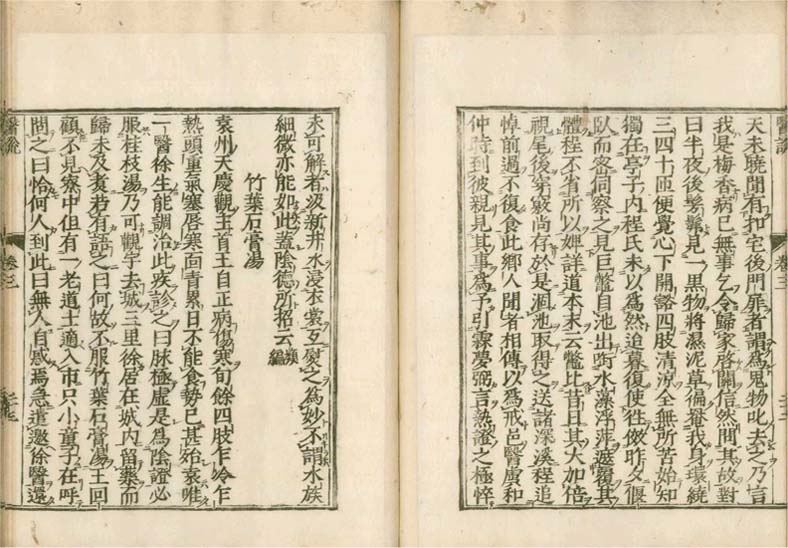 醫說
卷三
天未曉聞有扣宅後門扉者謂爲鬼物叱去之乃言
我是梅香病已無事乞令歸家啓關信然問其故對
曰半夜後髣髴見一黑物將濕泥草徧罨我身環繞
三四十匝便覺心下開豁四肢清涼全無所苦始知
獨在亭子内程氏未以爲然迨暮復使徃傚昨夕偃
臥而密伺察之見巨鱉自池出啣水藻浮萍遮覆其
體程不省所以婢詳道本末云鱉比昔日其大加倍
視尾後穿竅尚存於是涸池取得之送諸深溪程追
悼前過不復食此鄉人聞者相傳以爲戒邑醫廣和
仲時到彼親見其事爲予引霖夢弼言熱證之極悴
未可解者汲新井水浸衣裳互熨之爲妙不謂水族
細微亦能如此蓋陰德所招云類編
竹葉石膏湯
袁州天慶觀主首王自正病傷寒旬餘四肢乍冷乍
熱頭重氣塞唇寒面青累日不能食勢已甚殆袁唯
一醫徐生能調治此疾診之曰脉極虛是爲陰證必
服桂枝湯乃可觀宇去城三里徐居在城内留藥而
歸未及煑若有語之曰何故不服竹葉石膏湯王回
顧不見寮中但有一老道士適入市只小童子在呼
問之曰恰何人到此曰無人自惑焉急遣邀徐醫還
醫說
卷三